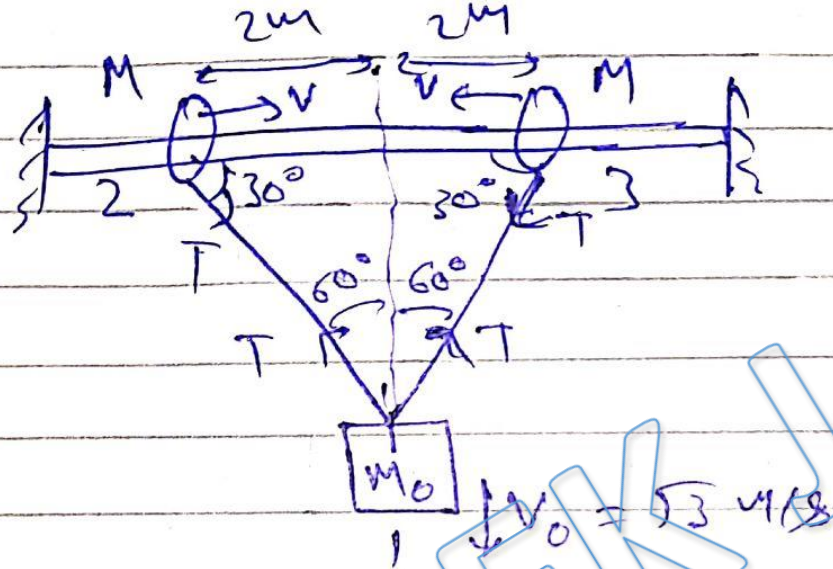 2m 2m
M V V M
2 30° 30° 3
T T
60° 60°
T T
M₀
1 ↓V₀ = √3 m/s
EKJ